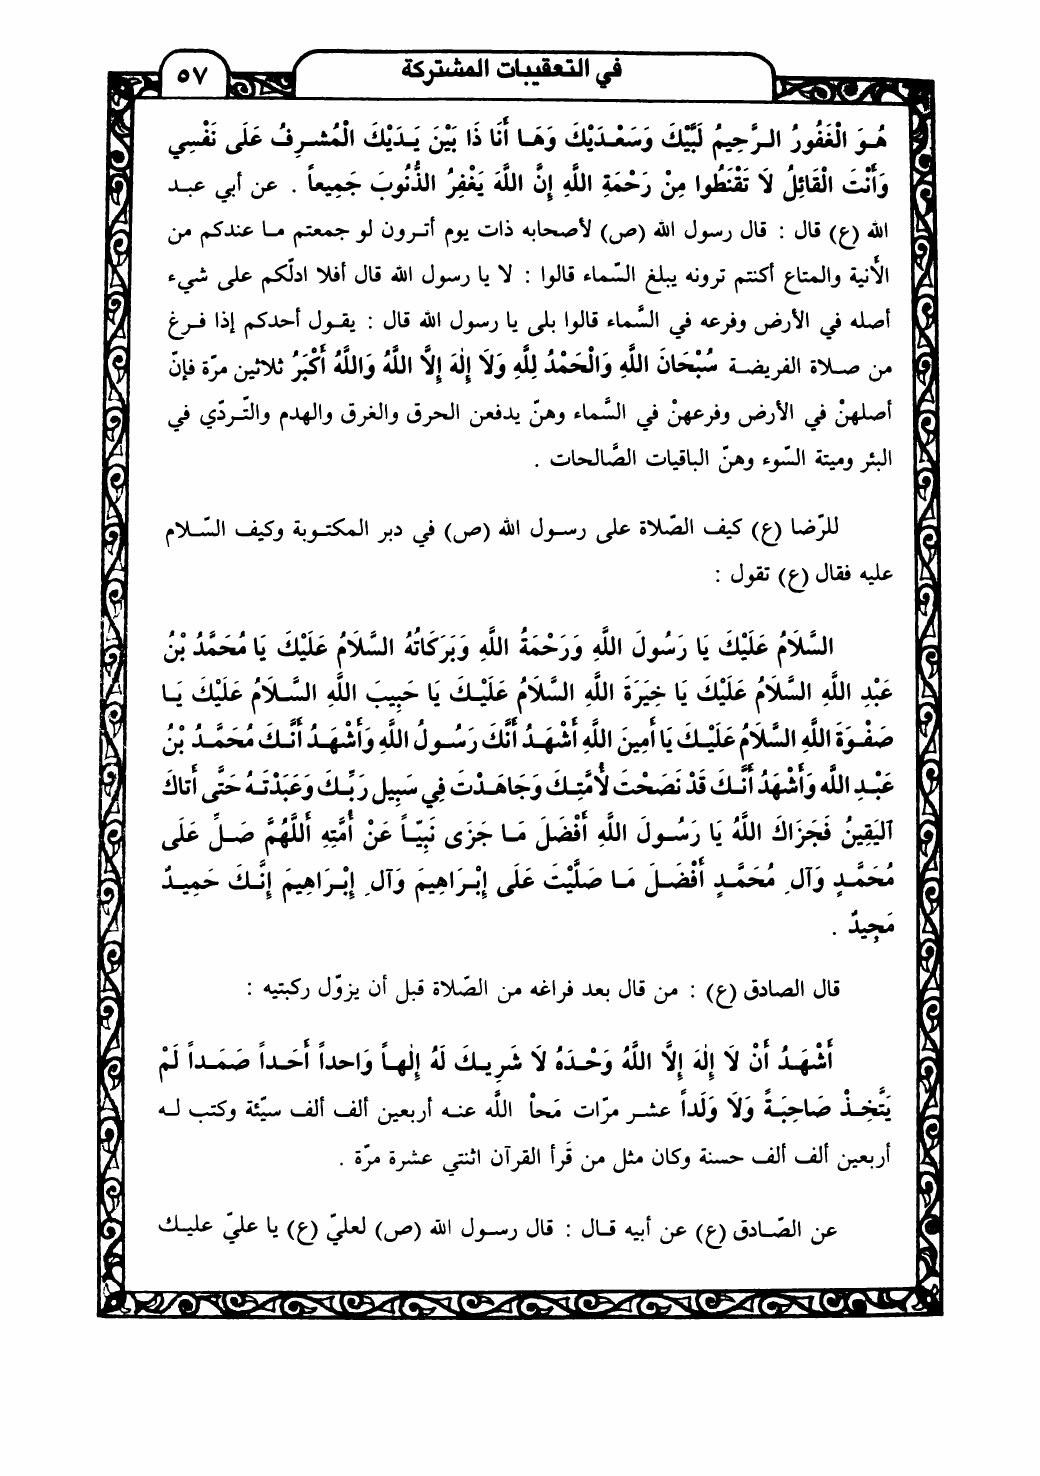 في التعقيبات المشتركة
٥٧
هُوَ الْغَفُورُ الرَّحِيمُ لَبَّيْكَ وَسَعْدَيْكَ وَهَا أَنَا ذَا بَيْنَ يَدَيْكَ الْمُشرِفُ عَلَى نَفْسِي
وَأَنْتَ الْقَائِلُ لَا تَقْنَطُوا مِنْ رَحْمَةِ اللَّهِ إِنَّ اللَّهَ يَغْفِرُ الذُّنُوبَ جَمِيعاً . عن أبي عبد
الله (ع) قال : قال رسول الله (ص) لأصحابه ذات يوم أترون لو جمعتم ما عندكم من
الأنية والمتاع أكنتم ترونه يبلغ السّماء قالوا : لا يا رسول الله قال أفلا ادلّكم على شيء
أصله في الأرض وفرعه في السَّماء قالوا بلى يا رسول الله قال : يقول أحدكم إذا فرغ
من صلاة الفريضة سُبْحَانَ اللَّهِ وَالْحَمْدُ لِلَّهِ وَلَا إِلٰهَ إِلَّا اللَّهُ وَاللَّهُ أَكْبَرُ ثلاثين مرّة فإنّ
أصلهنْ في الأرض وفرعهنْ في السَّماء وهنّ يدفعن الحرق والغرق والهدم والتّردّي في
البئر وميتة السّوء وهنّ الباقيات الصَّالحات .
للرّضا (ع) كيف الصّلاة على رسول الله (ص) في دبر المكتوبة وكيف السّلام
عليه فقال (ع) تقول :
السَّلَامُ عَلَيْكَ يَا رَسُولَ اللَّهِ وَرَحْمَةُ اللَّهِ وَبَرَكَاتُهُ السَّلَامُ عَلَيْكَ يَا مُحَمَّدُ بْنُ
عَبْدِ اللَّهِ السَّلَامُ عَلَيْكَ يَا خِيَرَةَ اللَّهِ السَّلَامُ عَلَيْكَ يَا حَبِيبَ اللَّهِ السَّلَامُ عَلَيْكَ يَا
صَفْوَةَ اللَّهِ السَّلَامُ عَلَيْكَ يَا أَمِينَ اللَّهِ أَشْهَدُ أَنَّكَ رَسُولُ اللَّهِ وَأَشْهَدُ أَنَّكَ مُحَمَّدُ بْنُ
عَبْدِ اللَّه وَأَشْهَدُ أَنَّكَ قَدْ نَصَحْتَ لأُمَّتِكَ وَجَاهَدْتَ فِي سَبِيلِ رَبِّكَ وَعَبَدْتَهُ حَتَّى أَتَاكَ
آليَقِينُ فَجَزَاكَ اللَّهُ يَا رَسُولَ اللَّهِ أَفْضَلَ مَا جَزَى نَبِيّاً عَنْ أُمَّتِهِ أَللَّهُمَّ صَلِّ عَلَى
مُحَمَّدٍ وَآلِ مُحَمَّدٍ أَفْضَلَ مَا صَلَّيْتَ عَلَى إِبْرَاهِيمَ وَآلِ إِبْرَاهِيمَ إِنَّكَ حَمِيدٌ
مَجِيدٌ .
قال الصادق (ع) : من قال بعد فراغه من الصّلاة قبل أن يزوّل ركبتيه :
أَشْهَدُ أَنْ لَا إِلٰهَ إِلَّا اللَّهُ وَحْدَهُ لَا شَرِيكَ لَهُ إِلٰهاً وَاحداً أَحَداً صَمَداً لَمْ
يَتَّخِذْ صَاحِبَةً وَلَا وَلَداً عشر مرّات مَحاْ اللَّه عنه أربعين ألف ألف سيّئة وكتب له
أربعين ألف ألف حسنة وكان مثل من قَرأ القرآن اثنتي عشرة مرّة .
عن الصّادق (ع) عن أبيه قال : قال رسول الله (ص) لعليّ (ع) يا عليّ عليك